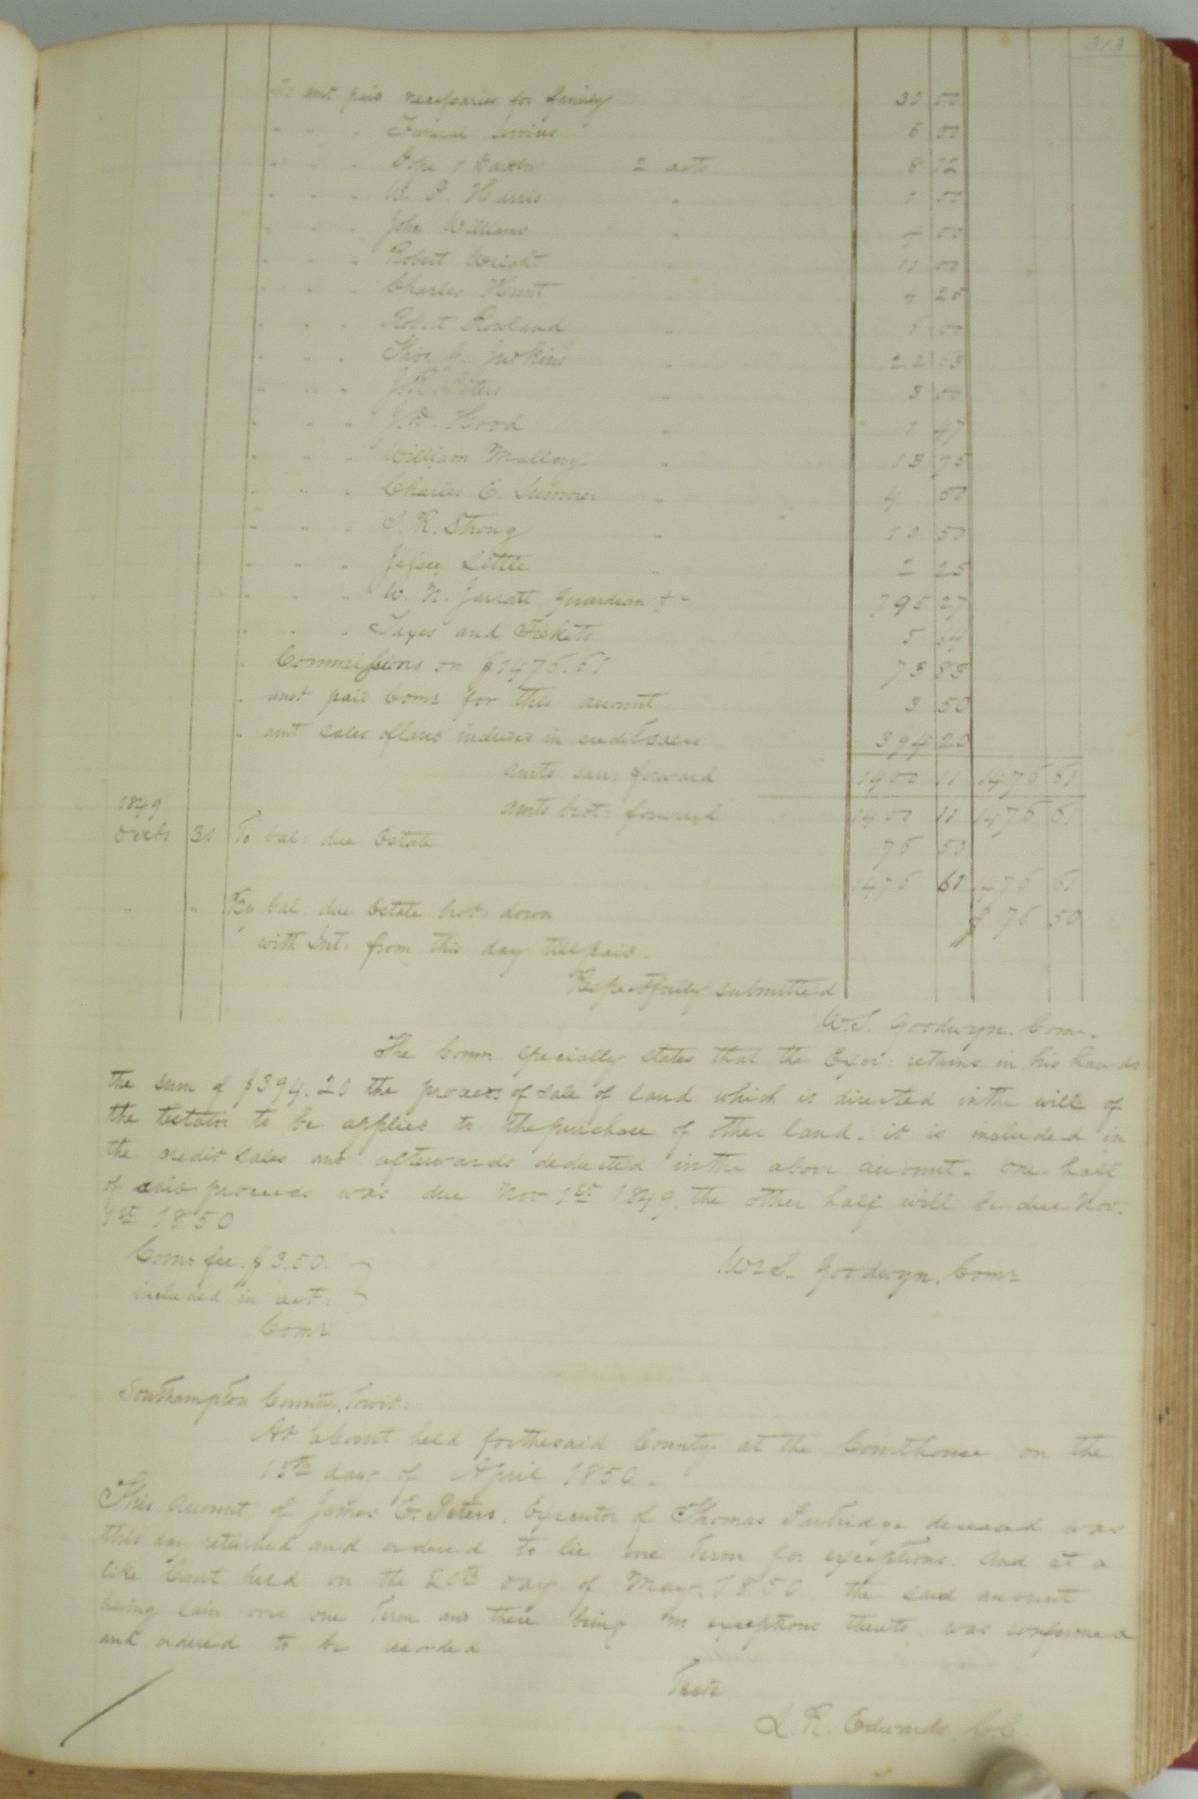 313
To amt paid necessaries for family 30 00
" " " Funeral Services 5 00
" " " Pope & 2 acts 8 12
" " " Harris " 00
" " " John Williams " 50
" " " Robert Wright 00
" " " Charles Hunt 7 25
" " " Robert Rowland " 00
" " " Thos. J. Judkins " 22 63
" " " " 3 00
" " " Hood " 1 47
" " " William Mallory " 13 75
" " " Charles C. Sumner " 4 50
" " " S. K. Strong " 10 50
" " " Jesse Little " 2 25
" " " W. N. Jarratt guardian &c 795 27
" " " Taxes and Tickets 5
" Commissions on $1476.61 73 83
" amt paid Comr for this account 3 50
" amt sales of land included in credit sales 394 20
amts carr: forward 1400 11 1476 61
1849 amts brot: forward 1400 11 1476 61
Decbr 31 To bal: due Estate 76 50
1476 61 1476 61
" " By bal: due Estate brot: down $ 76 50
with Int: from this day till paid.
Respectfully submitted
W. S. Goodwyn. Comr.
The Comr specially states that the Exor: retains in his hands
the sum of $394.20 the proceeds of sale of land which is directed in the will of
the testator to be applied to the purchase of other land. it is included in
the credit sales and afterwards deducted in the above account. one half
of said proceeds was due Nov 1st 1849, the other half will be due Nov:
1st 1850
Comr fee $3.50. W. S. Goodwyn. Comr
included in act.
Comr
Southampton County, Towit:
At a Court held for the said County at the Courthouse on the
15th day of April 1850.
This Account of James E. Peters, Executor of Thomas Partridge deceased was
this day returned and ordered to lie one Term for exceptions. And at a
like Court held on the 20th day of May, 1850 the said account
having lain over one Term and there being no exceptions thereto was confirmed
and ordered to be recorded
Teste
L. R. Edwards CC